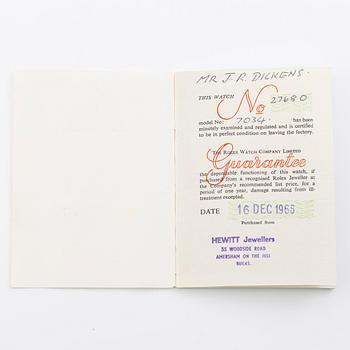 MR J. R. DICKENS.
THIS WATCH No 27680
model No: 7034. has been
minutely examined and regulated and is certified
to be in perfect condition on leaving the factory.
THE ROLEX WATCH COMPANY LIMITED
Guarantee
the dependable functioning of this watch, if
purchased from a recognised Rolex Jeweller at
the Company's recommended list price, for a
period of one year, damage resulting from ill-
treatment excepted.
DATE 16 DEC 1966
Purchased from
HEWITT Jewellers
55 WOODSIDE ROAD
AMERSHAM ON THE HILL
BUCKS.